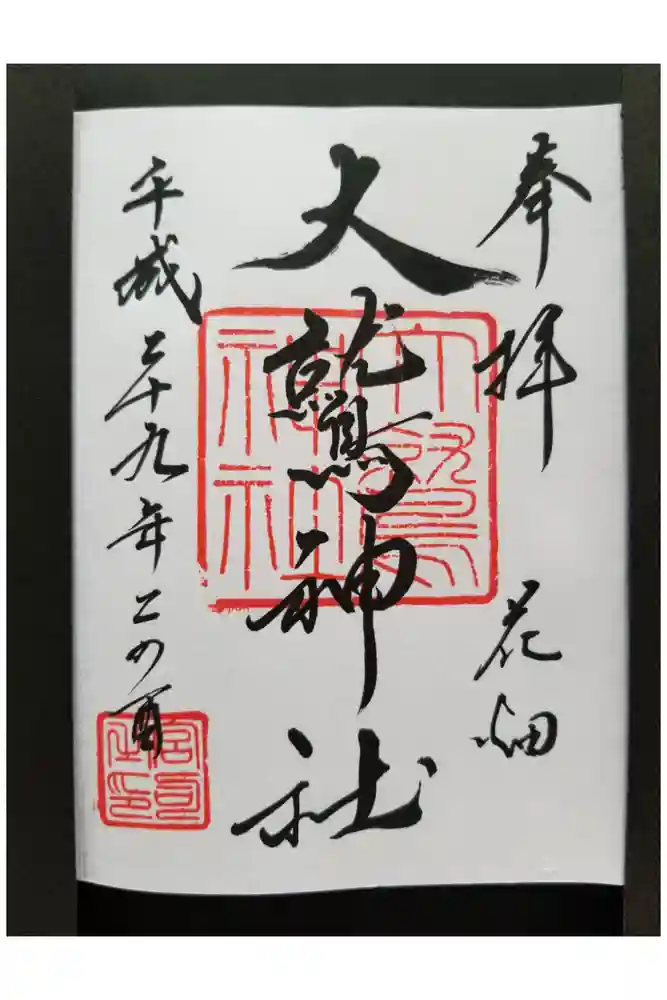 奉拝 花畑
大鷲神社
大鷲神社
平成二十九年二の酉
宮司之印